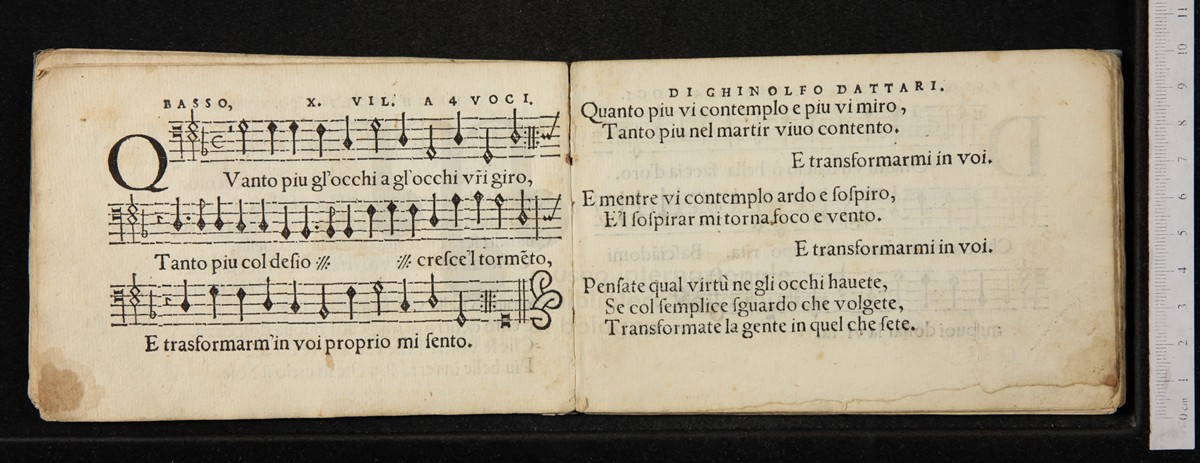 BASSO, X. VIL. A 4 VOCI.
QVanto piu gl'occhi a gl'occhi vr̃i giro,
Tanto piu col desio ⁒ ⁒ cresce'l tormẽto,
E trasformarm'in voi proprio mi sento.
DI GHINOLFO DATTARI.
Quanto piu vi contemplo e piu vi miro,
Tanto piu nel martir viuo contento.
E transformarmi in voi.
E mentre vi contemplo ardo e sospiro,
E'l sospirar mi torna foco e vento.
E transformarmi in voi.
Pensate qual virtù ne gli occhi hauete,
Se col semplice sguardo che volgete,
Transformate la gente in quel che sete.
0 cm 1 2 3 4 5 6 7 8 9 10 11